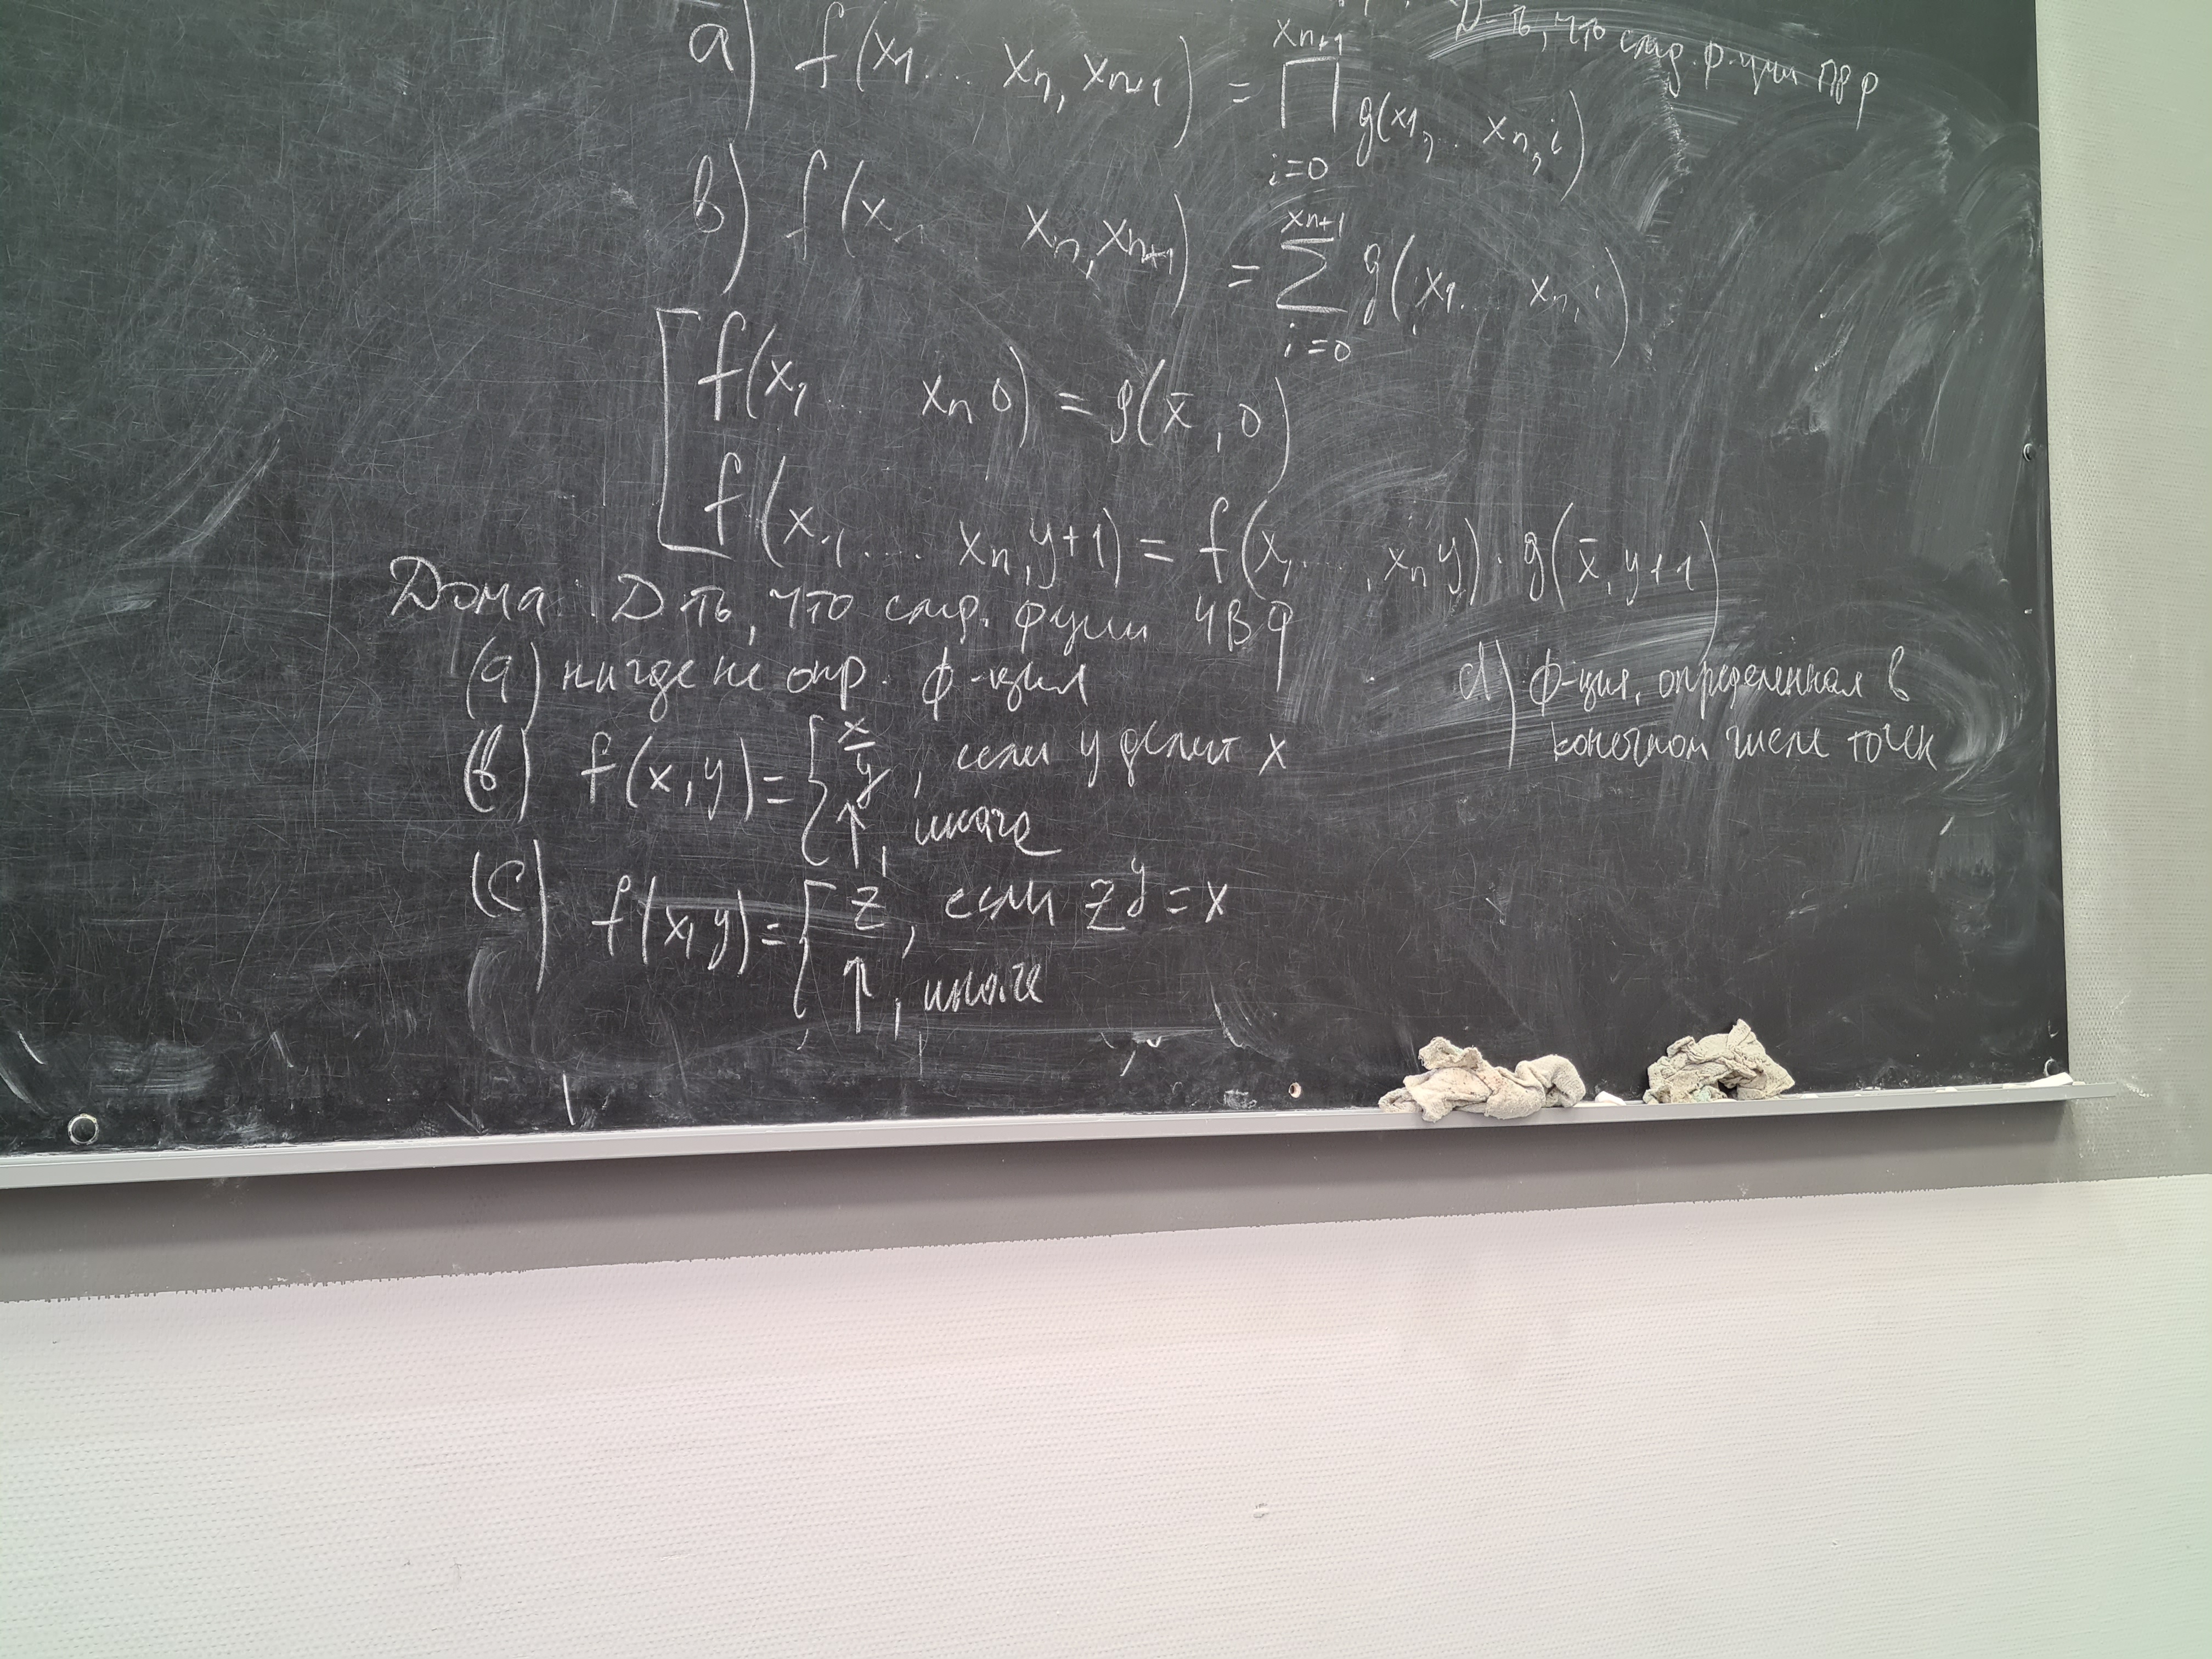 Д-ть, что след. ф-ции ПВР
a) f(x1 ... xn, xn+1) = ∏_{i=0}^{xn+1} g(x1, ... xn, i)
b) f(x1 ... xn, xn+1) = ∑_{i=0}^{xn+1} g(x1 ... xn, i)
f(x1 ... xn 0) = g(x̄, 0)
f(x1 ... xn, y+1) = f(x1 ..., xn y) · g(x̄, y+1)
Дома: Д-ть, что след. функции ЧВФ
(a) нигде не опр. ф-ция
(b) f(x, y) = { x/y, если y делит x
↑, иначе
(c) f(x, y) = { z, если z^y = x
↑, иначе
d) ф-ция, определенная в
конечном числе точек